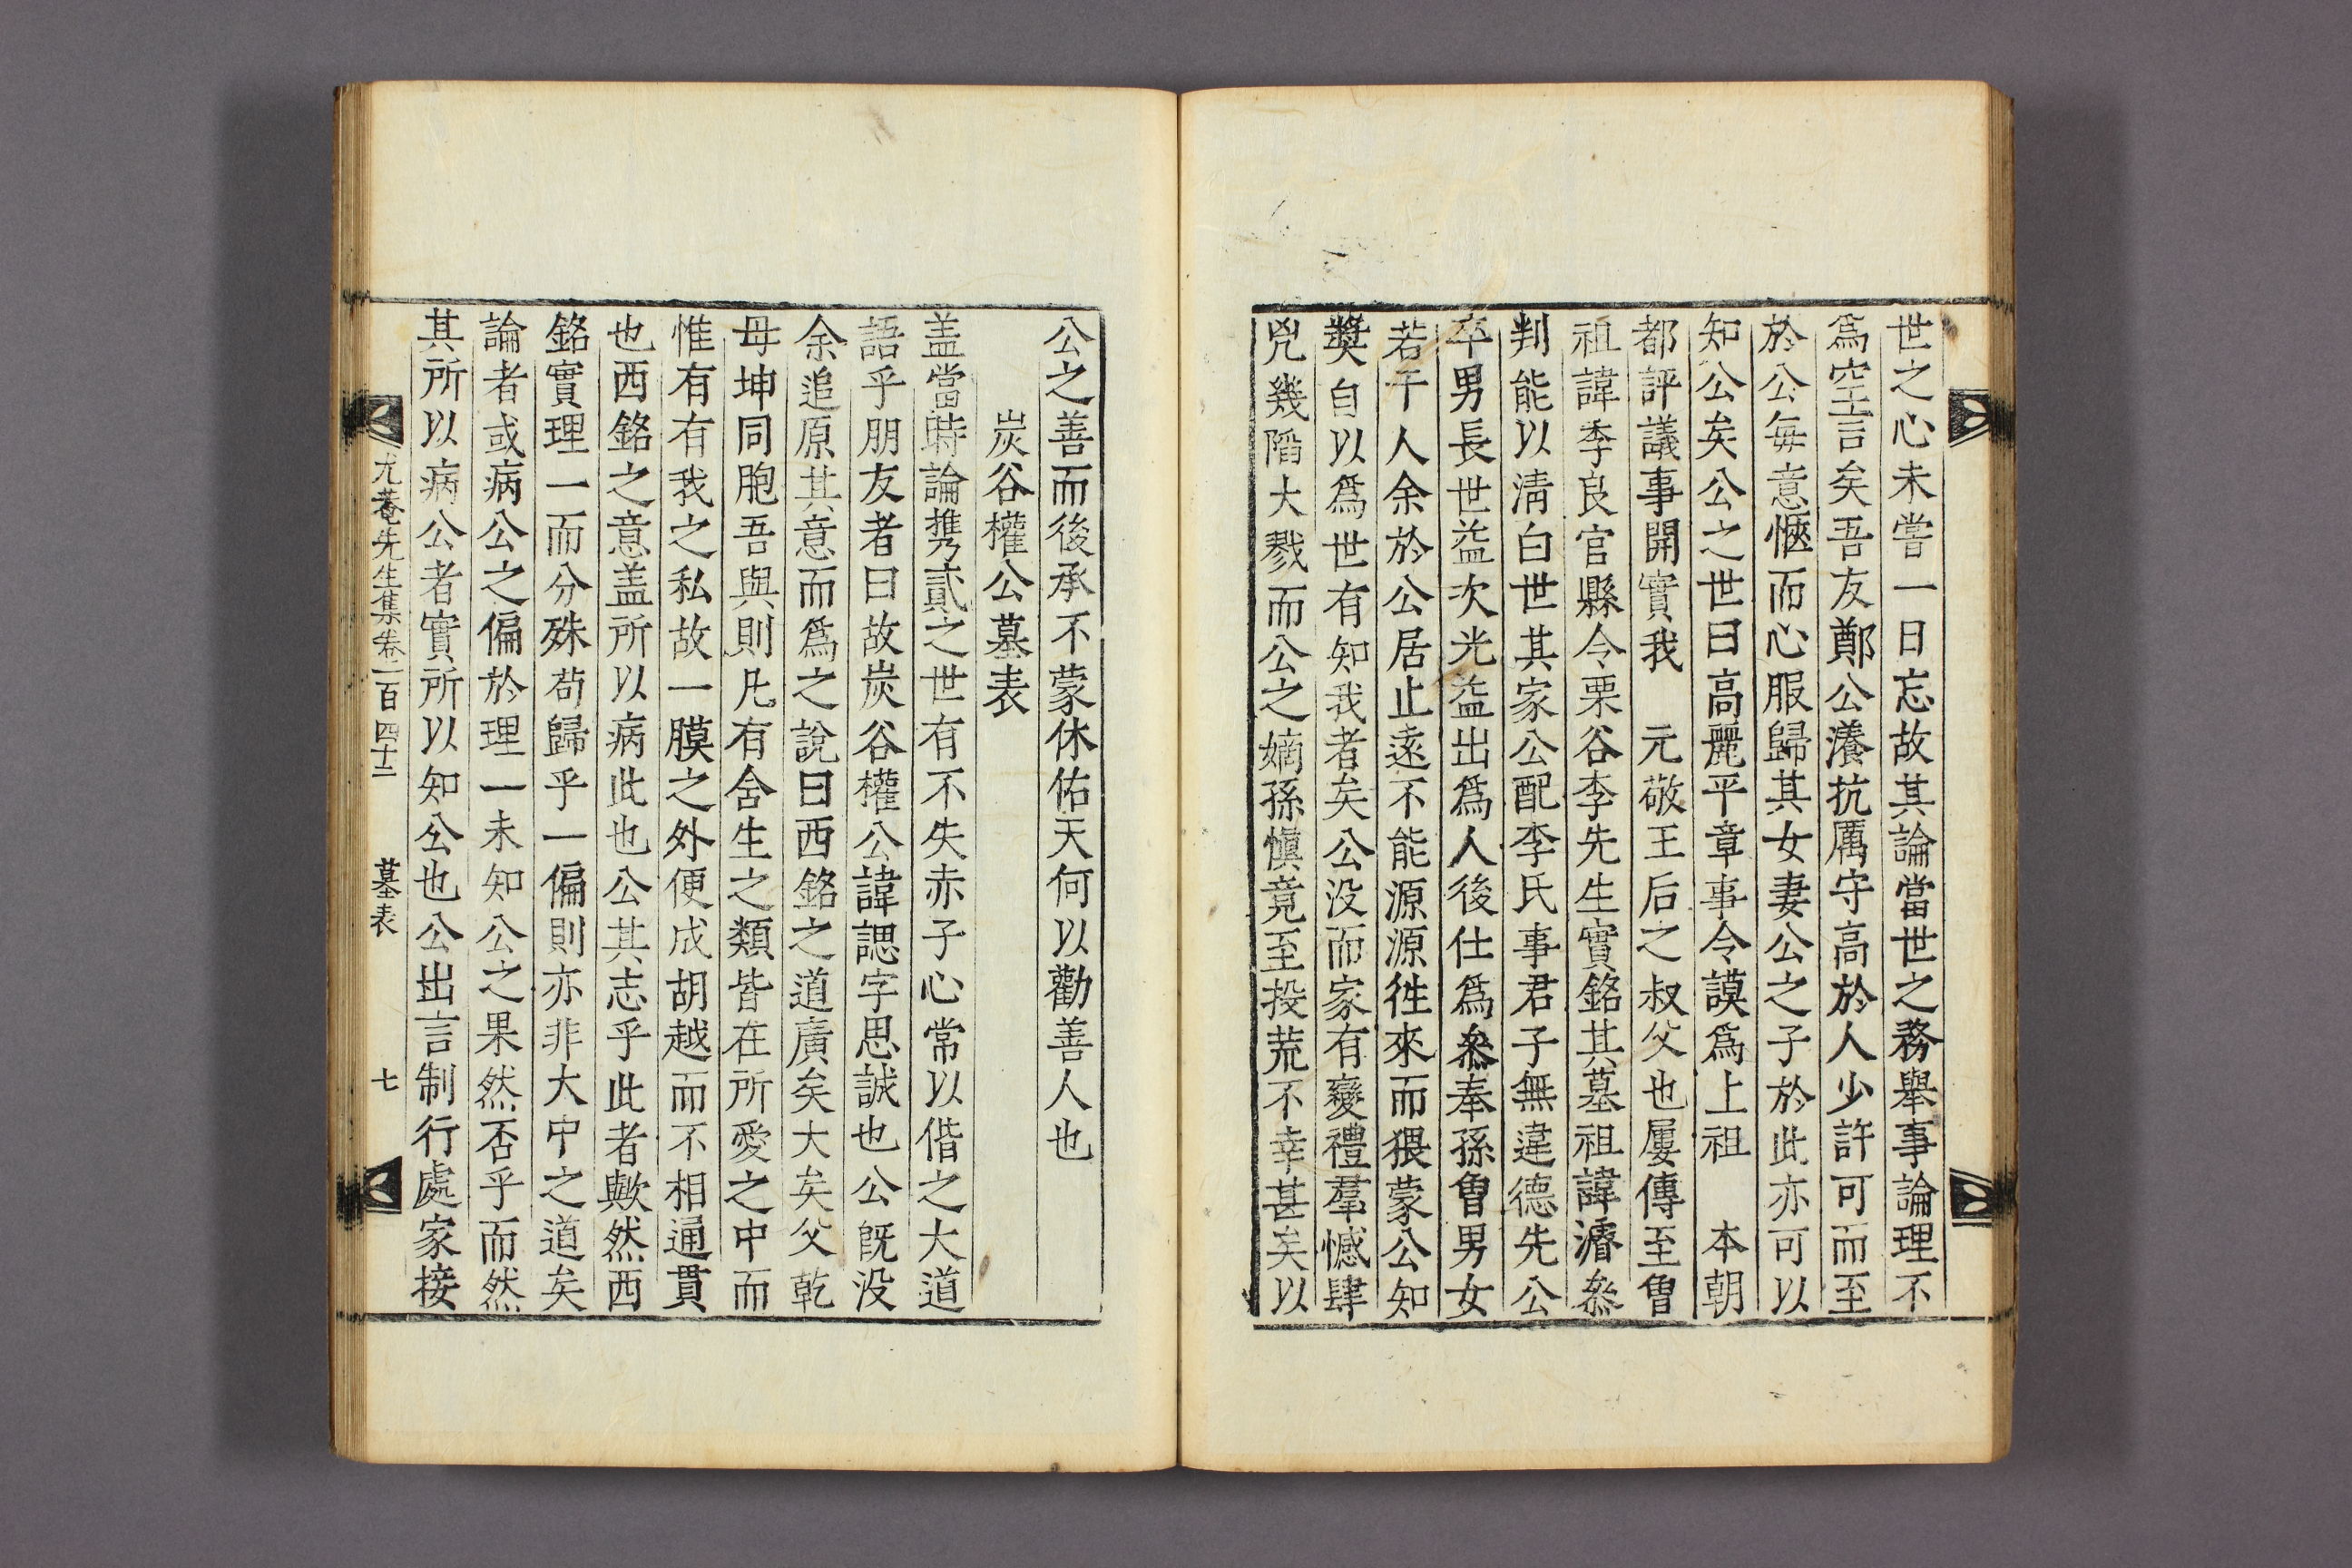 世之心未嘗一日忘故其論當世之務舉事論理不
爲空言矣吾友鄭公瀁抗厲守高於人少許可而至
於公每意愜而心服歸其女妻公之子於此亦可以
知公矣公之世曰高麗平章事令謨爲上祖　本朝
都評議事開實我　元敬王后之叔父也屢傳至曾
祖諱李良官縣令栗谷李先生實銘其墓祖諱濬叅
判能以淸白世其家公配李氏事君子無違德先公
卒男長世益次光益出爲人後仕爲叅奉孫曾男女
若干人余於公居止遠不能源源徃來而猥蒙公知
奬自以爲世有知我者矣公没而家有變禮羣憾肆
兇幾陷大戮而公之嫡孫愼竟至投荒不幸甚矣以
公之善而後承不蒙休佑天何以勸善人也
炭谷權公墓表
盖當時論携貳之世有不失赤子心常以偕之大道
語乎朋友者曰故炭谷權公諱諰字思誠也公旣没
余追原其意而爲之說曰西銘之道廣矣大矣父乾
母坤同胞吾與則凡有舍生之類皆在所愛之中而
惟有有我之私故一膜之外便成胡越而不相通貫
也西銘之意盖所以病此也公其志乎此者歟然西
銘實理一而分殊苟歸乎一偏則亦非大中之道矣
論者或病公之偏於理一未知公之果然否乎而然
其所以病公者實所以知公也公出言制行處家接
尤菴先生集卷二百四十二　墓表　七